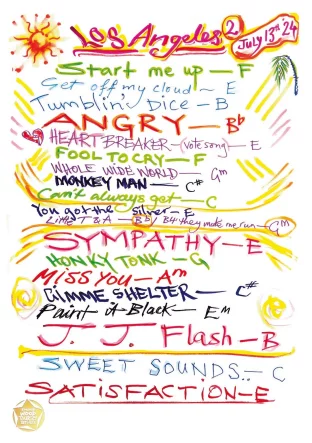 LOS Angeles 2
July 13th 24
Start me up — F
Get off my cloud ~ E
Tumblin' Dice — B
ANGRY — Bb
HEARTBREAKER (Vote song) — E
FOOL TO CRY — F
WHOLE WIDE WORLD — Gm
MONKEY MAN — C#
Can't always get — C
You got the silver — E
LITTLE T & A — Bb/ B4 they make me run — G
SYMPATHY — E
HONKY TONK — G
MISS YOU — Am
GIMME SHELTER — C#
Paint it Black — Em
J. J. Flash — B
SWEET SOUNDS.. — C
SATISFACTION — E